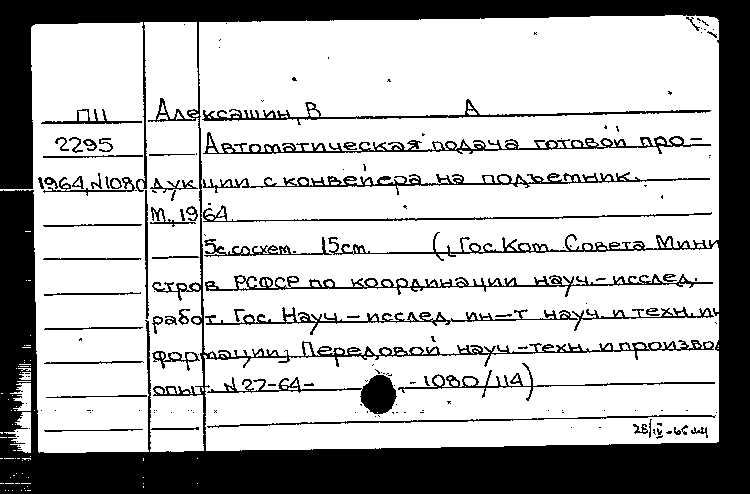 П11 Алексашин, В А
2295 Автоматическая подача готовой про-
1964, N1080 дукции с конвейера на подъемник.
М., 1964
5с. со схем. 15см. (, Гос. Ком. Совета Мини
стров РСФСР по координации науч.-исслед.
работ. Гос. Науч.-исслед. ин-т науч. и техн. ин
формации; Передовой науч.-техн. и произво
опыт. N 27-64- -1080/114)